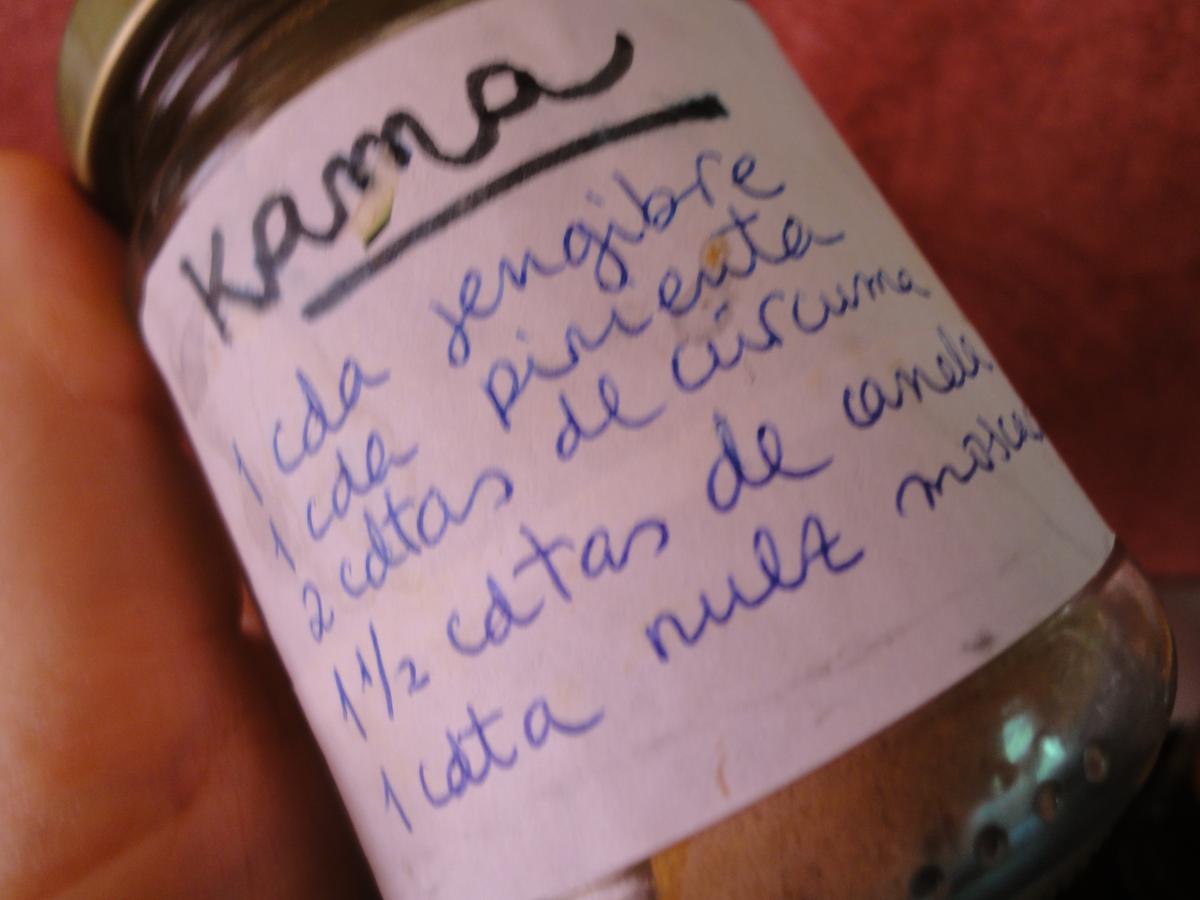 Kama
1 cda jengibre
1 cda pimienta
2 cdtas de cúrcuma
1 1/2 cdtas de canela
1 cdta nuez